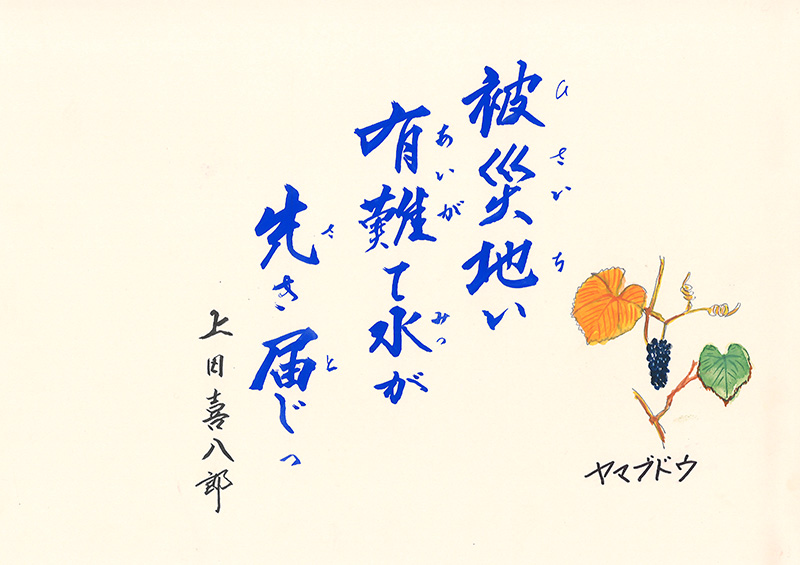 被災地い
ひさいち
有難て水が
あいがみつ
先き届じっ
さと
上田喜八郎
ヤマブドウ